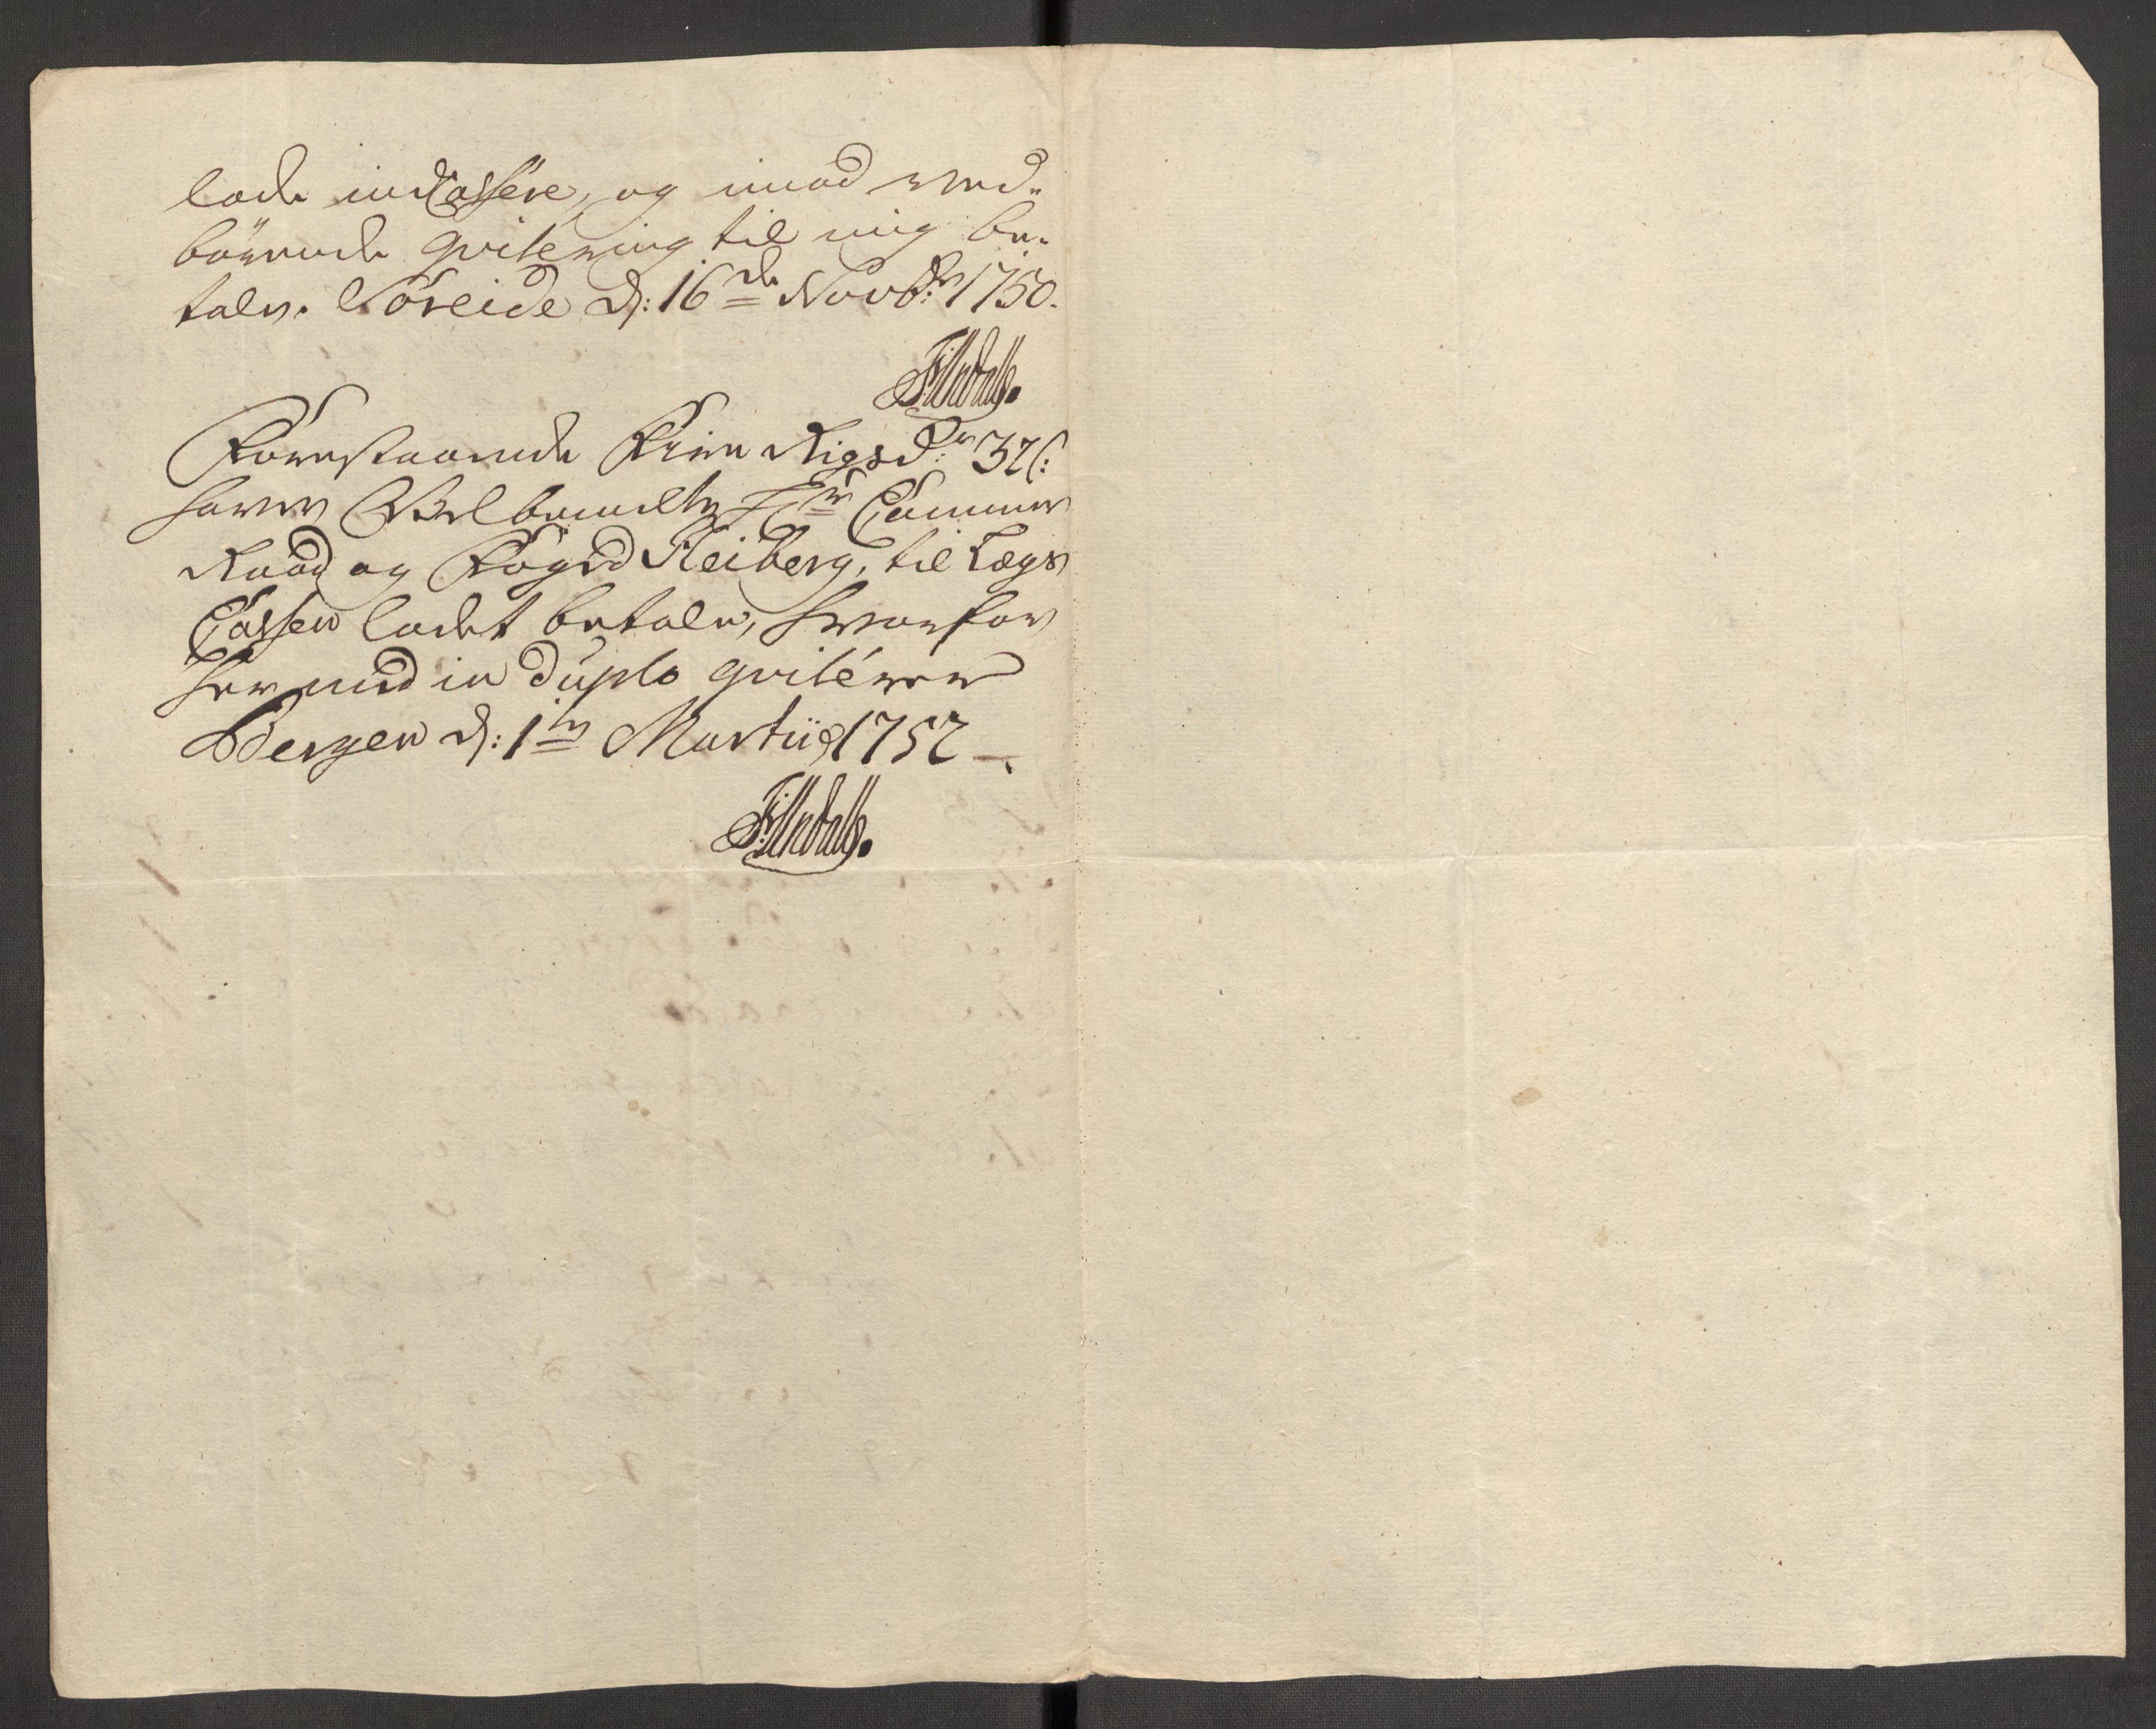 lade indCassere, og imod ved-
børende qvitering til mig be-
tale. Søreide d: 16de Novbr: 1750.
Forestaaende Fiire Rigsdr: 32 s:
haver Velbemelte Hr Cammer
Raad og Foged Heiberg, til Lægs
Cassen ladet betale, hvorfor
her med in duplo qviterer
Bergen d: 1te Martii 1752